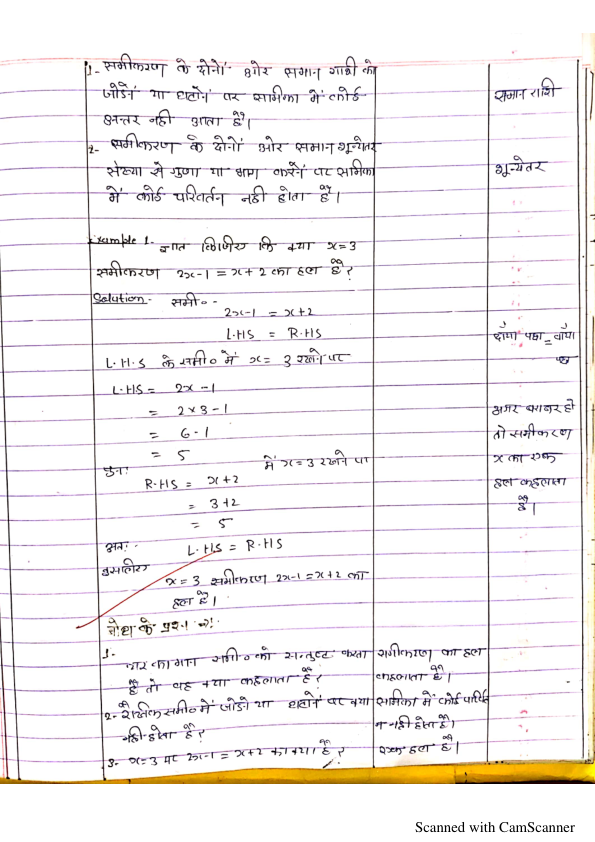 1- समीकरण के दोनों ओर समान राशी को
जोडने या घटाने पर सामिका में कोई
अन्तर नही आता है।
समान राशि
2- समीकरण के दोनों ओर समान शून्येतर
संख्या से गुणा या भाग करने पर सामिका
में कोई परिवर्तन नही होता है।
शून्येतर
Example 1- ज्ञात किजिए कि क्या x=3
समीकरण 2x-1 = x+2 का हल है?
Solution- समी० -
2x-1 = x+2
L.HS = R.HS
L.H.S के समी० में x= 3 रखने पर
दाँया पक्ष = बाँया
पक्ष
L.HS = 2x -1
= 2×3-1
= 6-1
= 5
अगर बराबर हो
तो समीकरण
x का एक
हल कहलाता
है।
पुनः में x=3 रखने पर
R.HS = x+2
= 3+2
= 5
अतः L.HS = R.HS
इसलिए
x=3 समीकरण 2x-1=x+2 का
हल है।
बोध के प्रश्न
1-
चर का मान समी० को सन्तुष्ट करता
है तो वह क्या कहलाता है?
समीकरण का हल
कहलाता है।
2- रैखिक समी० में जोडने या घटाने पर क्या
नही होता है?
सामिका में कोई परिवर्त
न नही होता है।
3- x=3 पर 2x-1 = x+2 का क्या है?
एक हल है।
Scanned with CamScanner